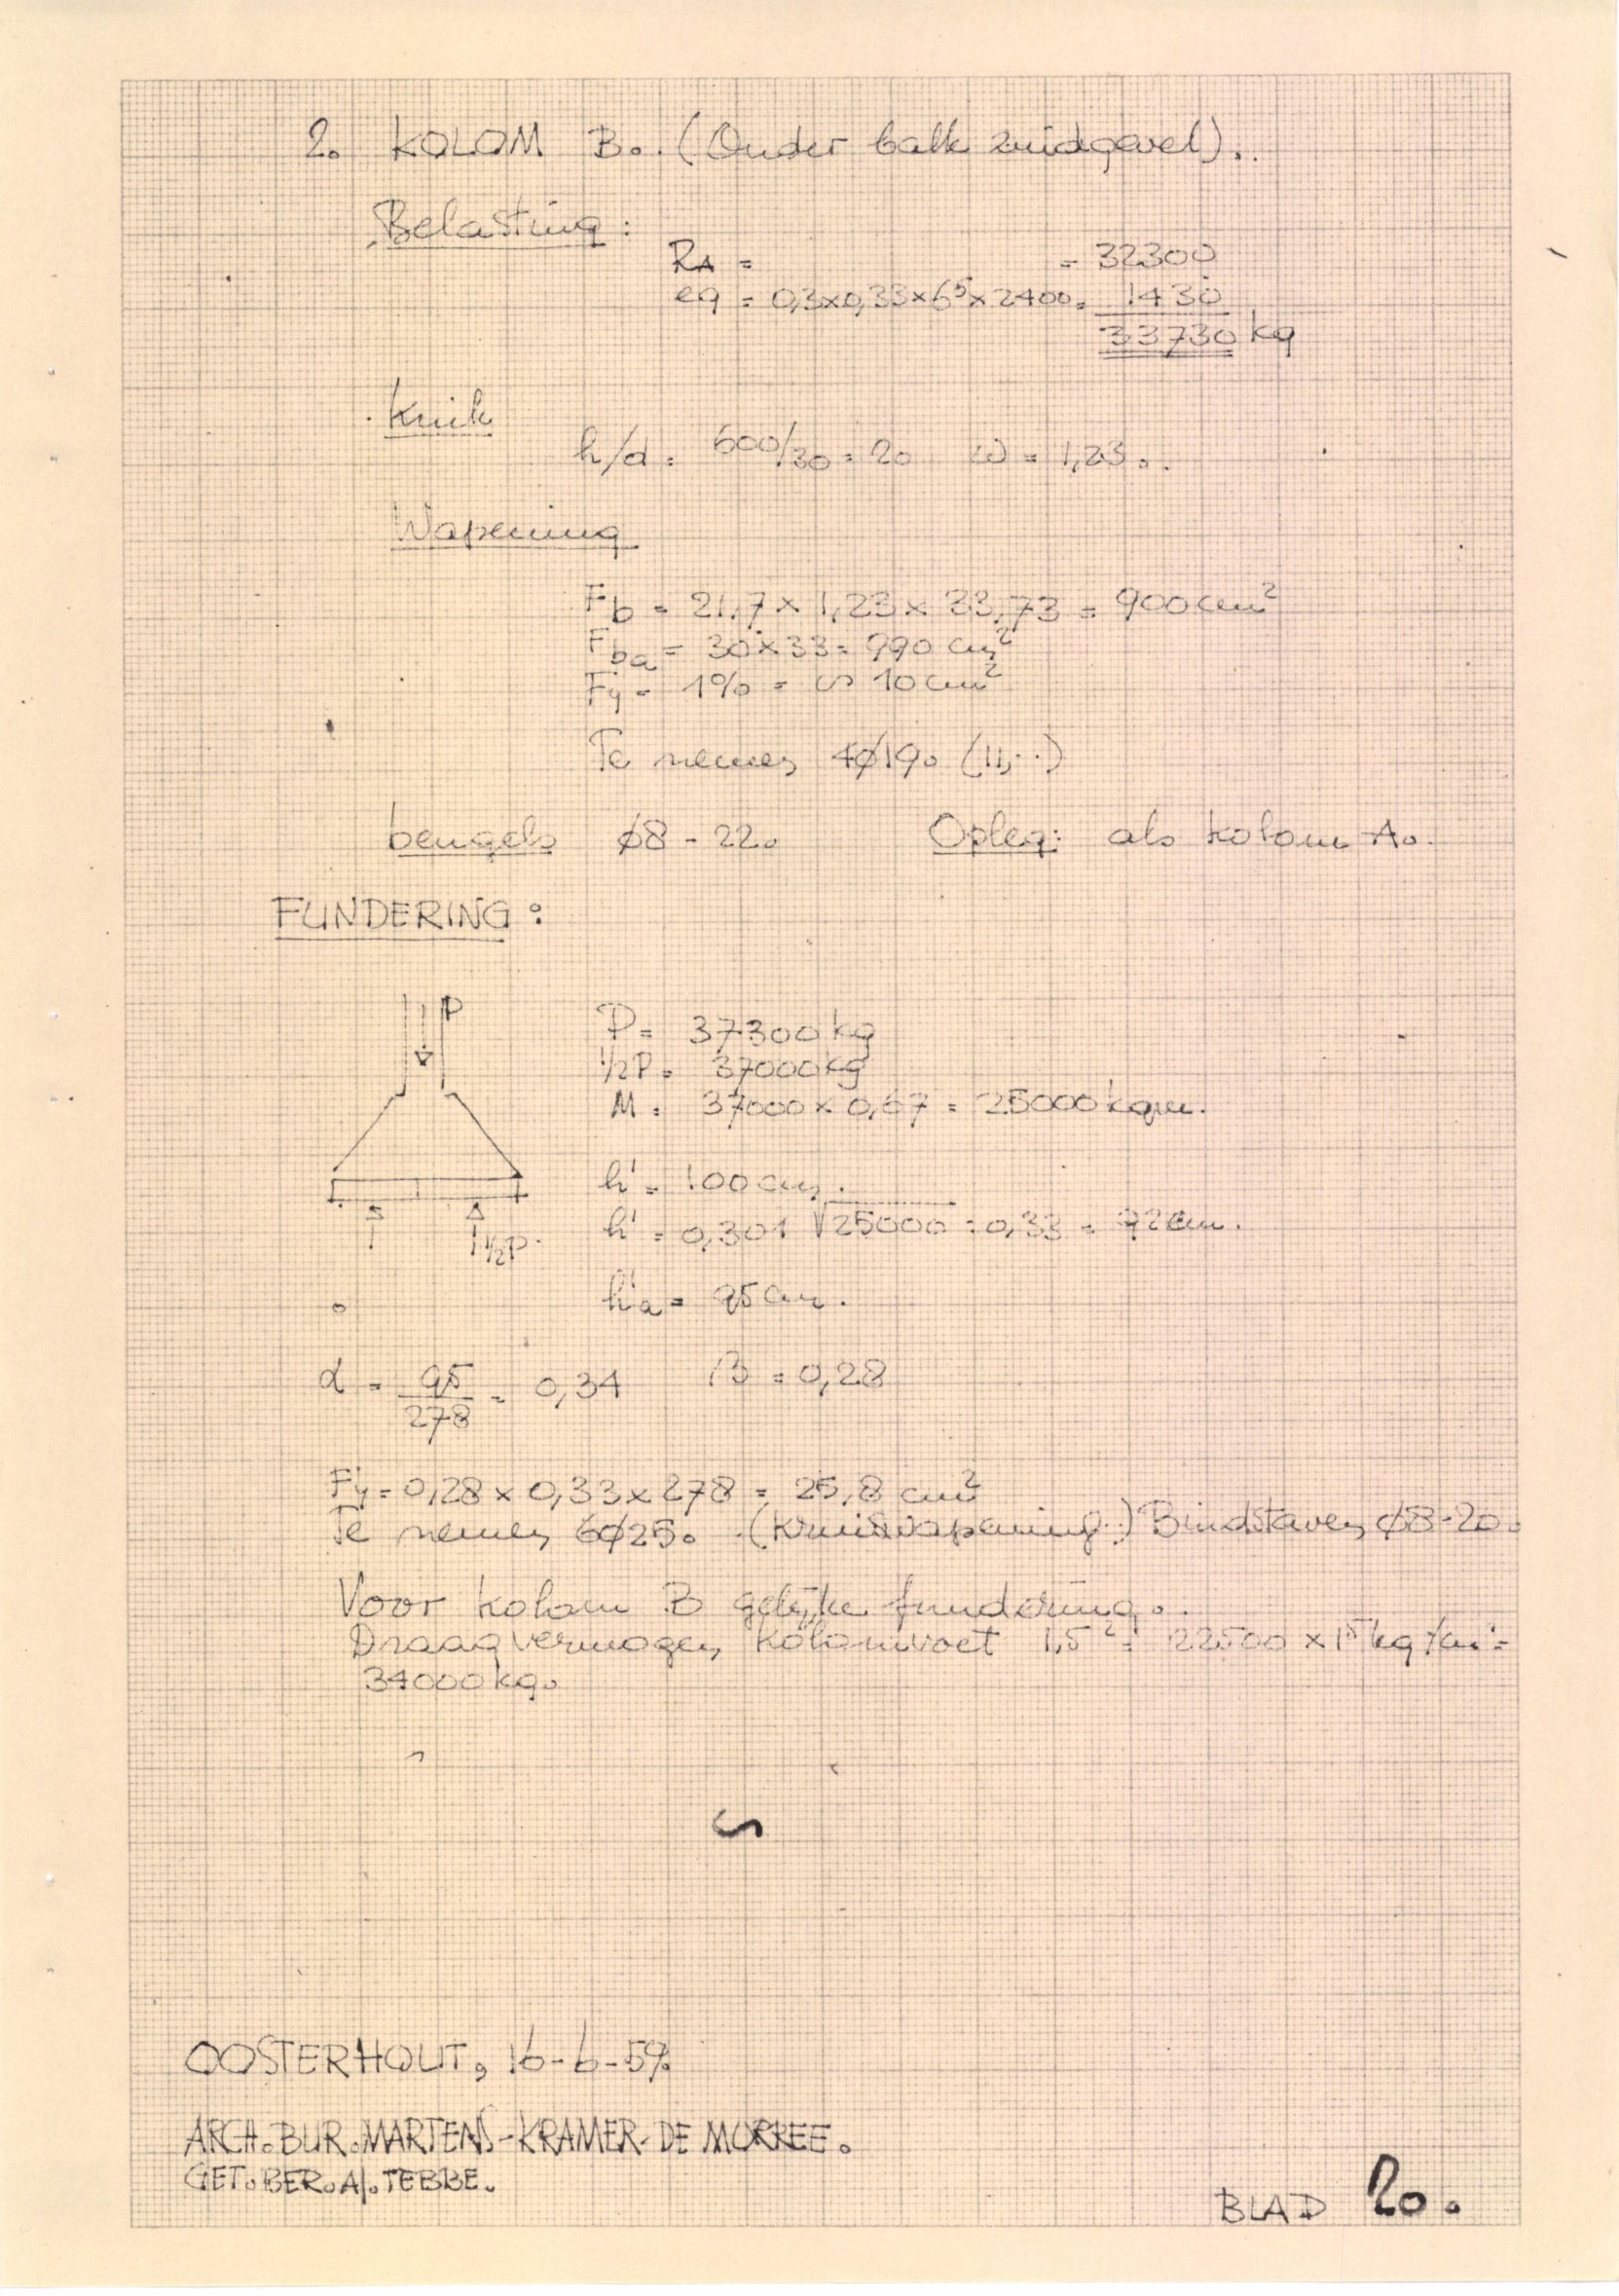 2. KOLOM B. (Onder balk zuidgevel).
Belasting:
RA = = 32300
eg = 0,3x0,33x6⁵x2400 = 1430
33730 kg
Knik
h/d = 600/30 = 20 ω = 1,23.
Wapening
Fb = 21,7 x 1,23 x 33,73 = 900 cm²
Fba = 30x33 = 990 cm²
Fy = 1% = ∽ 10 cm²
Te nemen 4ø19. (11,··)
beugels ø8 - 22. Opleg: als kolom A.
FUNDERING:
P
P = 37300 kg
½P = 37000 kg
M = 37000 x 0,67 = 25000 kgm.
h' = 100 cm.
h' = 0,301 √25000 : 0,33 = 92 cm.
½P.
h'a = 95 cm.
α = 95/278 = 0,34 β = 0,28
Fy = 0,28 x 0,33 x 278 = 25,8 cm²
Te nemen 6ø25. (Kruiswapening.) Bindstaven ø8-20.
Voor kolom B gelijke fundering.
Draagvermogen kolomvoet 1,5² = 22500 x 1⁵ kg/cm² =
34000 kg.
OOSTERHOUT, 16-6-59.
ARCH. BUR. MARTENS-KRAMER-DE MORREE.
GET. BER. A/. TEBBE.
BLAD 20.